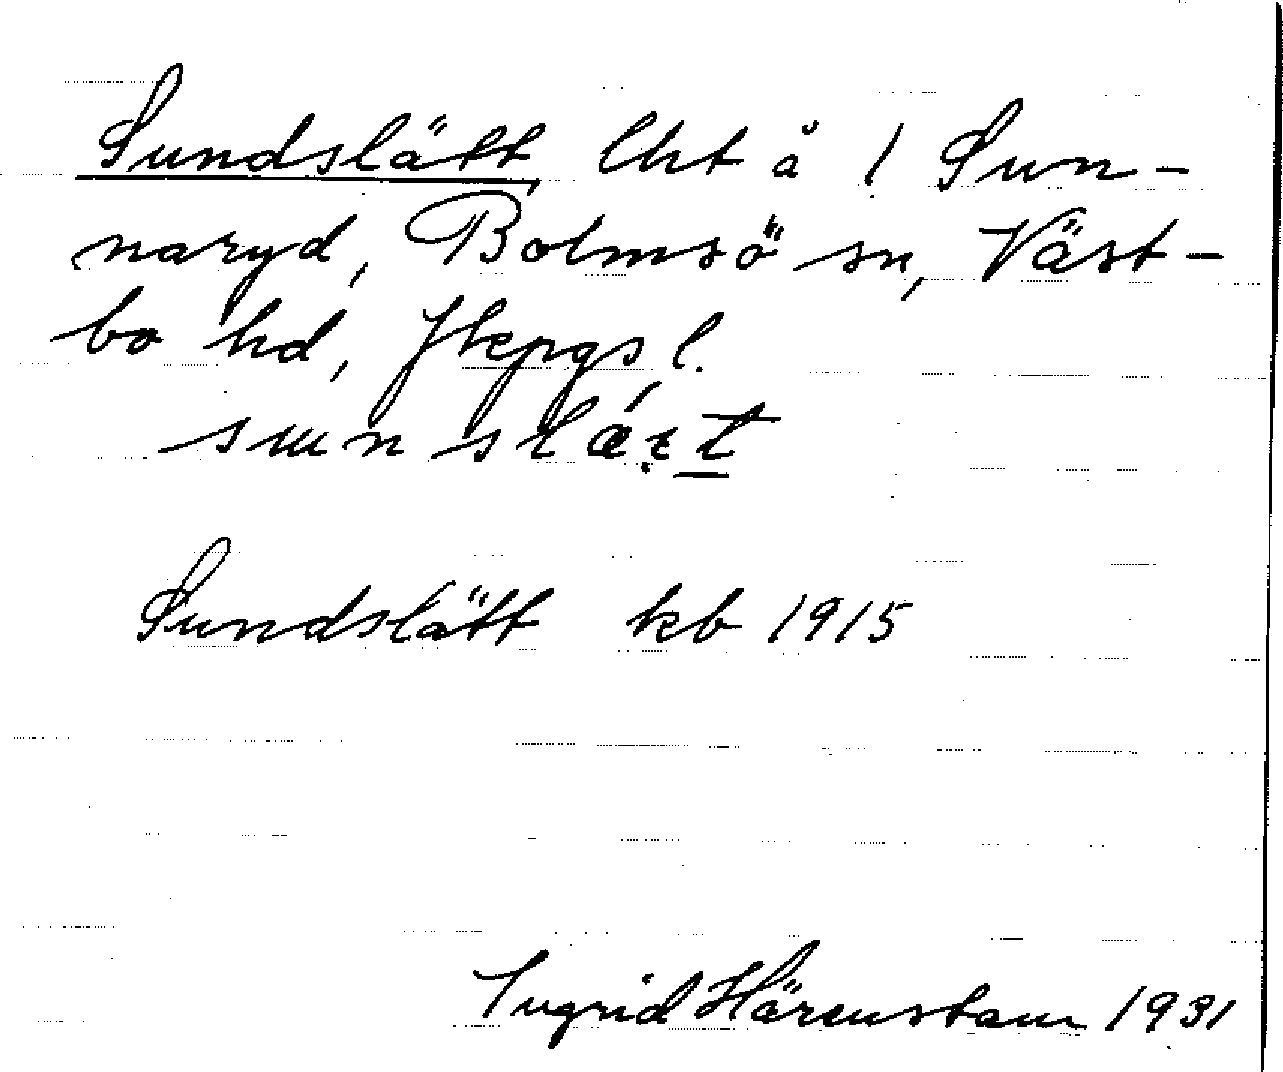 Sundslätt, lht å 1 Sun-
naryd, Bolmsö sn, Väst-
bo hd, Jkpgs l.
Sundslätt kb 1915
Ingrid Härenstam 1931